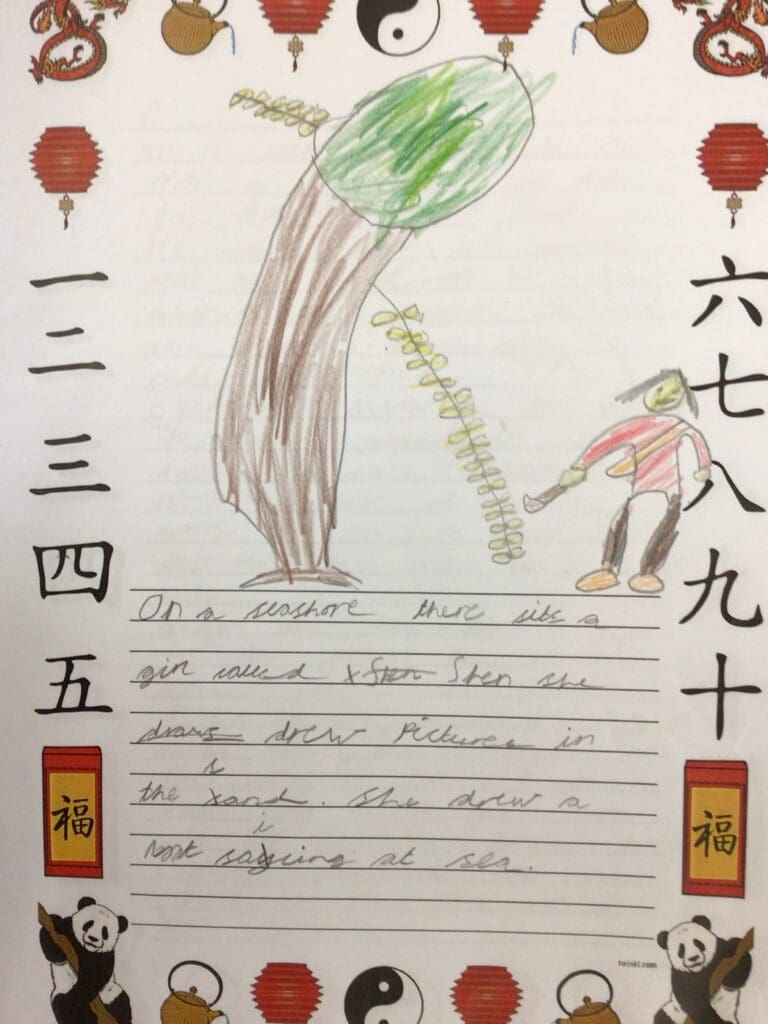 一
二
三
四
五
福
六
七
八
九
十
福
On a seashore there sits a
girl called Shen she
draws drew Pictures in
the sand. She drew a
boat sailing at sea.
twinkl.com